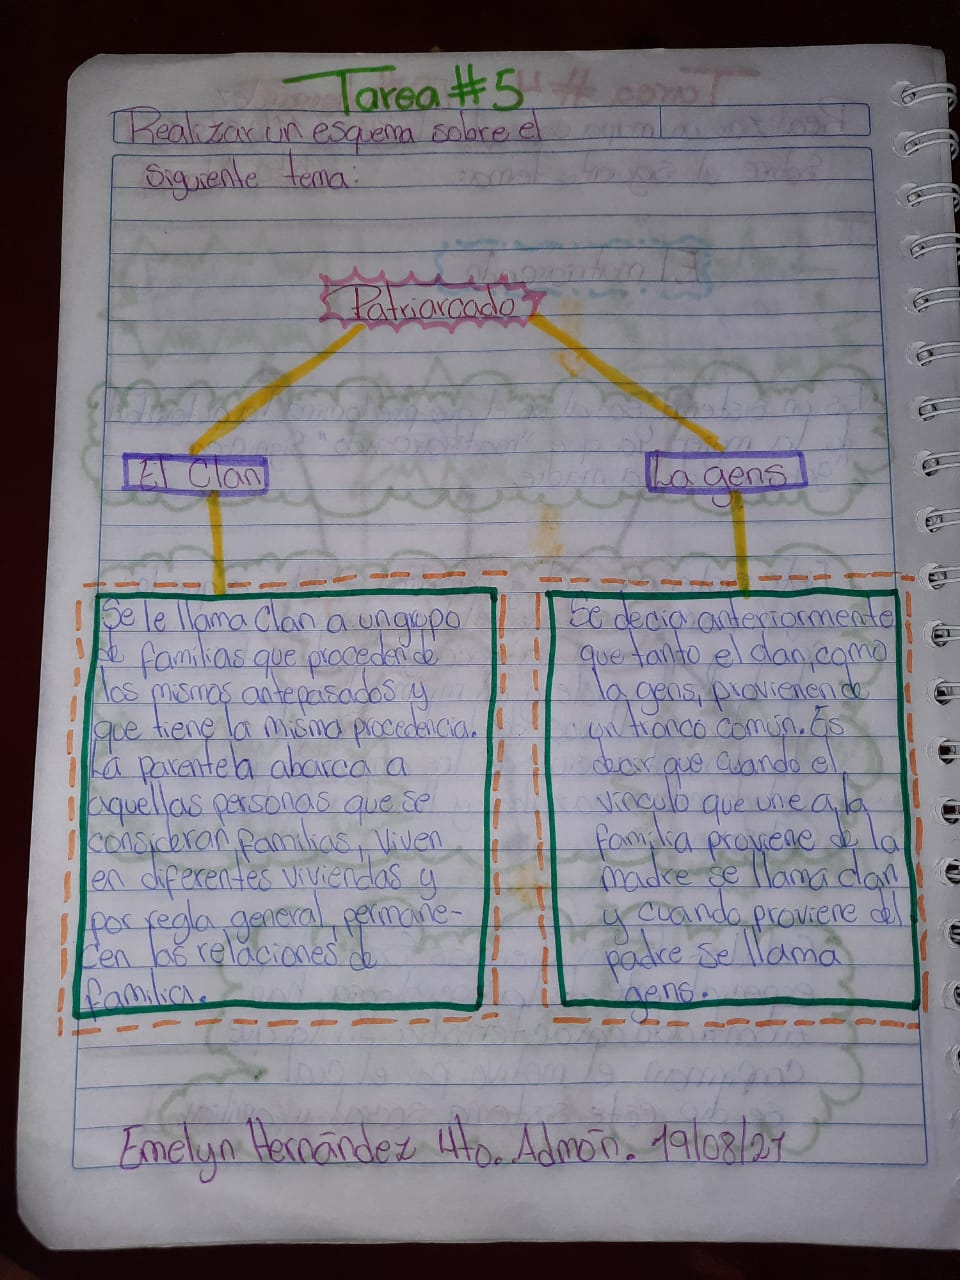 Tarea #5
Realizar un esquema sobre el
siguiente tema:
Patriarcado
El Clan
La gens
Se le llama Clan a un grupo
de familias que proceden de
los mismos antepasados y
que tiene la misma procedencia.
La parentela abarca a
aquellas personas que se
consideran familias, viven
en diferentes viviendas y
por regla general permane-
cen las relaciones de
familia.
Se decia anteriormente
que tanto el clan, como
la gens, provienen de
un tronco común. Es
decir que cuando el
vinculo que une a la
familia proviene de la
madre se llama clan
y cuando proviene del
padre se llama
gens.
Emelyn Hernández 4to. Admón. 19/08/21